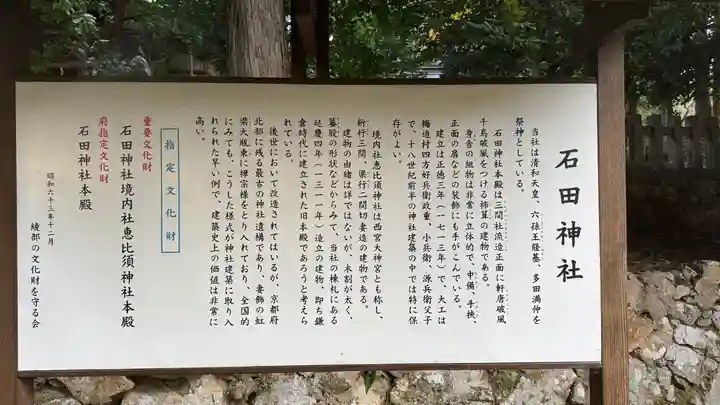 石田神社
当社は清和天皇、六孫王経基、多田満仲を
祭神としている。
石田神社本殿は三間社流造正面に軒唐破風、
千鳥破風をつける杮葺の建物である。
身舎の組物は非常に立体的で、中備、手挾、
正面の扉などの装飾にも手がこんでいる。
建立は正徳三年(一七一三年)で、大工は
梅迫村四方好兵衛政重、小兵衛、源兵衛父子
で、十八世紀前半の神社建築の中では特に保
存がよい。
境内社恵比須神社は西宮大神宮とも称し、
桁行三間、梁行二間切妻造の建物である。
建物の由緒は詳ではないが、木割が太く、
蟇股の形状などからみて、当社の棟札にある
延慶四年(一三一一年)造立の建物、即ち鎌
倉時代に建立された旧本殿であろうと考えら
れている。
後世において改造されてはいるが、京都府
北部に残る最古の神社遺構であり、妻飾の虹
梁大瓶束に禅宗様をとり入れており、全国的
にみても、こうした様式が神社建築に取り入
れられた早い例で、建築史上の価値は非常に
高い。
指定文化財
重要文化財
石田神社境内社恵比須神社本殿
府指定文化財
石田神社本殿
昭和六十三年十二月
綾部の文化財を守る会